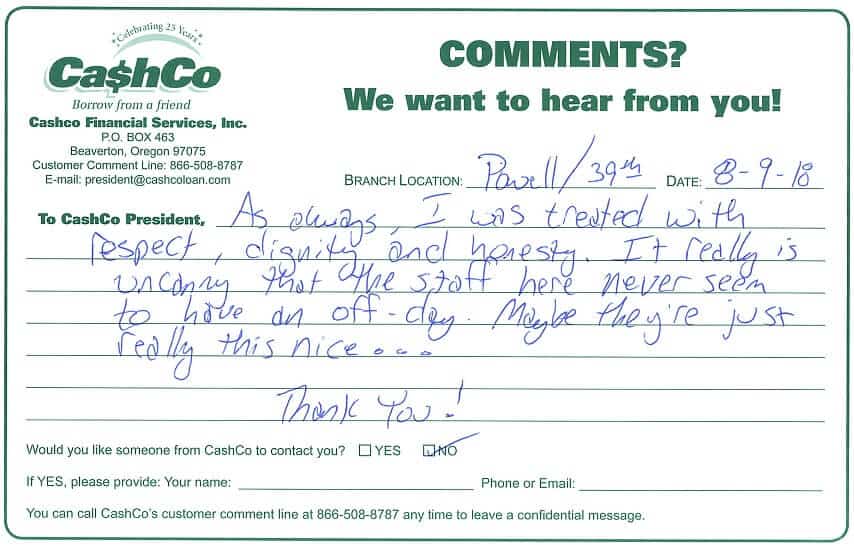 Celebrating 25 Years
Ca$hCo
Borrow from a friend
Cashco Financial Services, Inc.
P.O. BOX 463
Beaverton, Oregon 97075
Customer Comment Line: 866-508-8787
E-mail: president@cashcoloan.com
COMMENTS?
We want to hear from you!
BRANCH LOCATION: Powell/39th DATE: 8-9-18
To CashCo President, As always, I was treated with
respect, dignity and honesty. It really is
uncanny that the staff here never seem
to have an off-day. Maybe they're just
really this nice....
Thank You!
Would you like someone from CashCo to contact you? YES NO
If YES, please provide: Your name: Phone or Email:
You can call CashCo's customer comment line at 866-508-8787 any time to leave a confidential message.